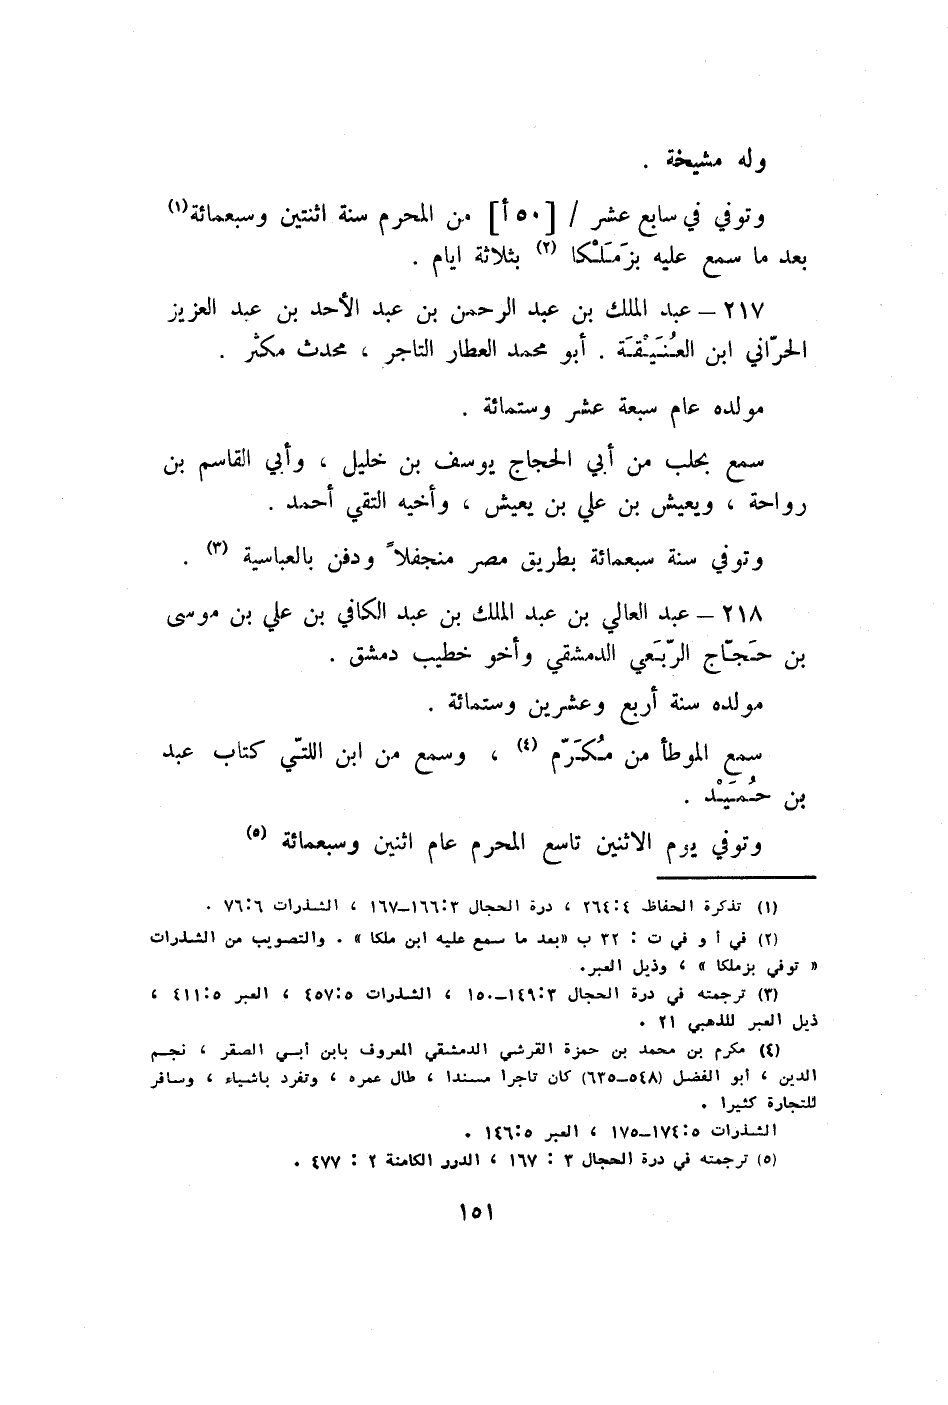 وله مشيخة .
وتوفي في سابع عشر / [٥٠ أ] من المحرم سنة اثنتين وسبعمائة(١)
بعد ما سمع عليه بزَمَلْكا (٢) بثلاثة ايام .
٢١٧ – عبد الملك بن عبد الرحمن بن عبد الأحد بن عبد العزيز
الحرّاني ابن العُنَيْقَة . أبو محمد العطار التاجر ، محدث مكثر .
مولده عام سبعة عشر وستمائة .
سمع بحلب من أبي الحجاج يوسف بن خليل ، وأبي القاسم بن
رواحة ، ويعيش بن علي بن يعيش ، وأخيه التقي أحمد .
وتوفي سنة سبعمائة بطريق مصر منجفلاً ودفن بالعباسية (٣) .
٢١٨ – عبد العالي بن عبد الملك بن عبد الكافي بن علي بن موسى
بن حَجّاج الرّبَعي الدمشقي وأخو خطيب دمشق .
مولده سنة أربع وعشرين وستمائة .
سمع الموطأ من مُكَرّم (٤) ، وسمع من ابن اللتّي كتاب عبد
بن حُمَيْد .
وتوفي يوم الاثنين تاسع المحرم عام اثنين وسبعمائة (٥)
(١) تذكرة الحفاظ ٤:٢٦٤ ، درة الحجال ٣:١٦٦–١٦٧ ، الشذرات ٦:٧٦ .
(٢) في أ و في ت : ٣٢ ب «بعد ما سمع عليه ابن ملكا» . والتصويب من الشذرات
« توفي بزملكا » ، وذيل العبر.
(٣) ترجمته في درة الحجال ٣:١٤٩–١٥٠ ، الشذرات ٥:٤٥٧ ، العبر ٥:٤١١ ،
ذيل العبر للذهبي ٢١ .
(٤) مكرم بن محمد بن حمزة القرشي الدمشقي المعروف بابن أبي الصقر ، نجم
الدين ، أبو الفضل (٥٤٨–٦٣٥) كان تاجرا مسندا ، طال عمره ، وتفرد باشياء ، وسافر
للتجارة كثيرا .
الشذرات ٥:١٧٤–١٧٥ ، العبر ٥:١٤٦ .
(٥) ترجمته في درة الحجال ٣ : ١٦٧ ، الدرر الكامنة ٢ : ٤٧٧ .
١٥١